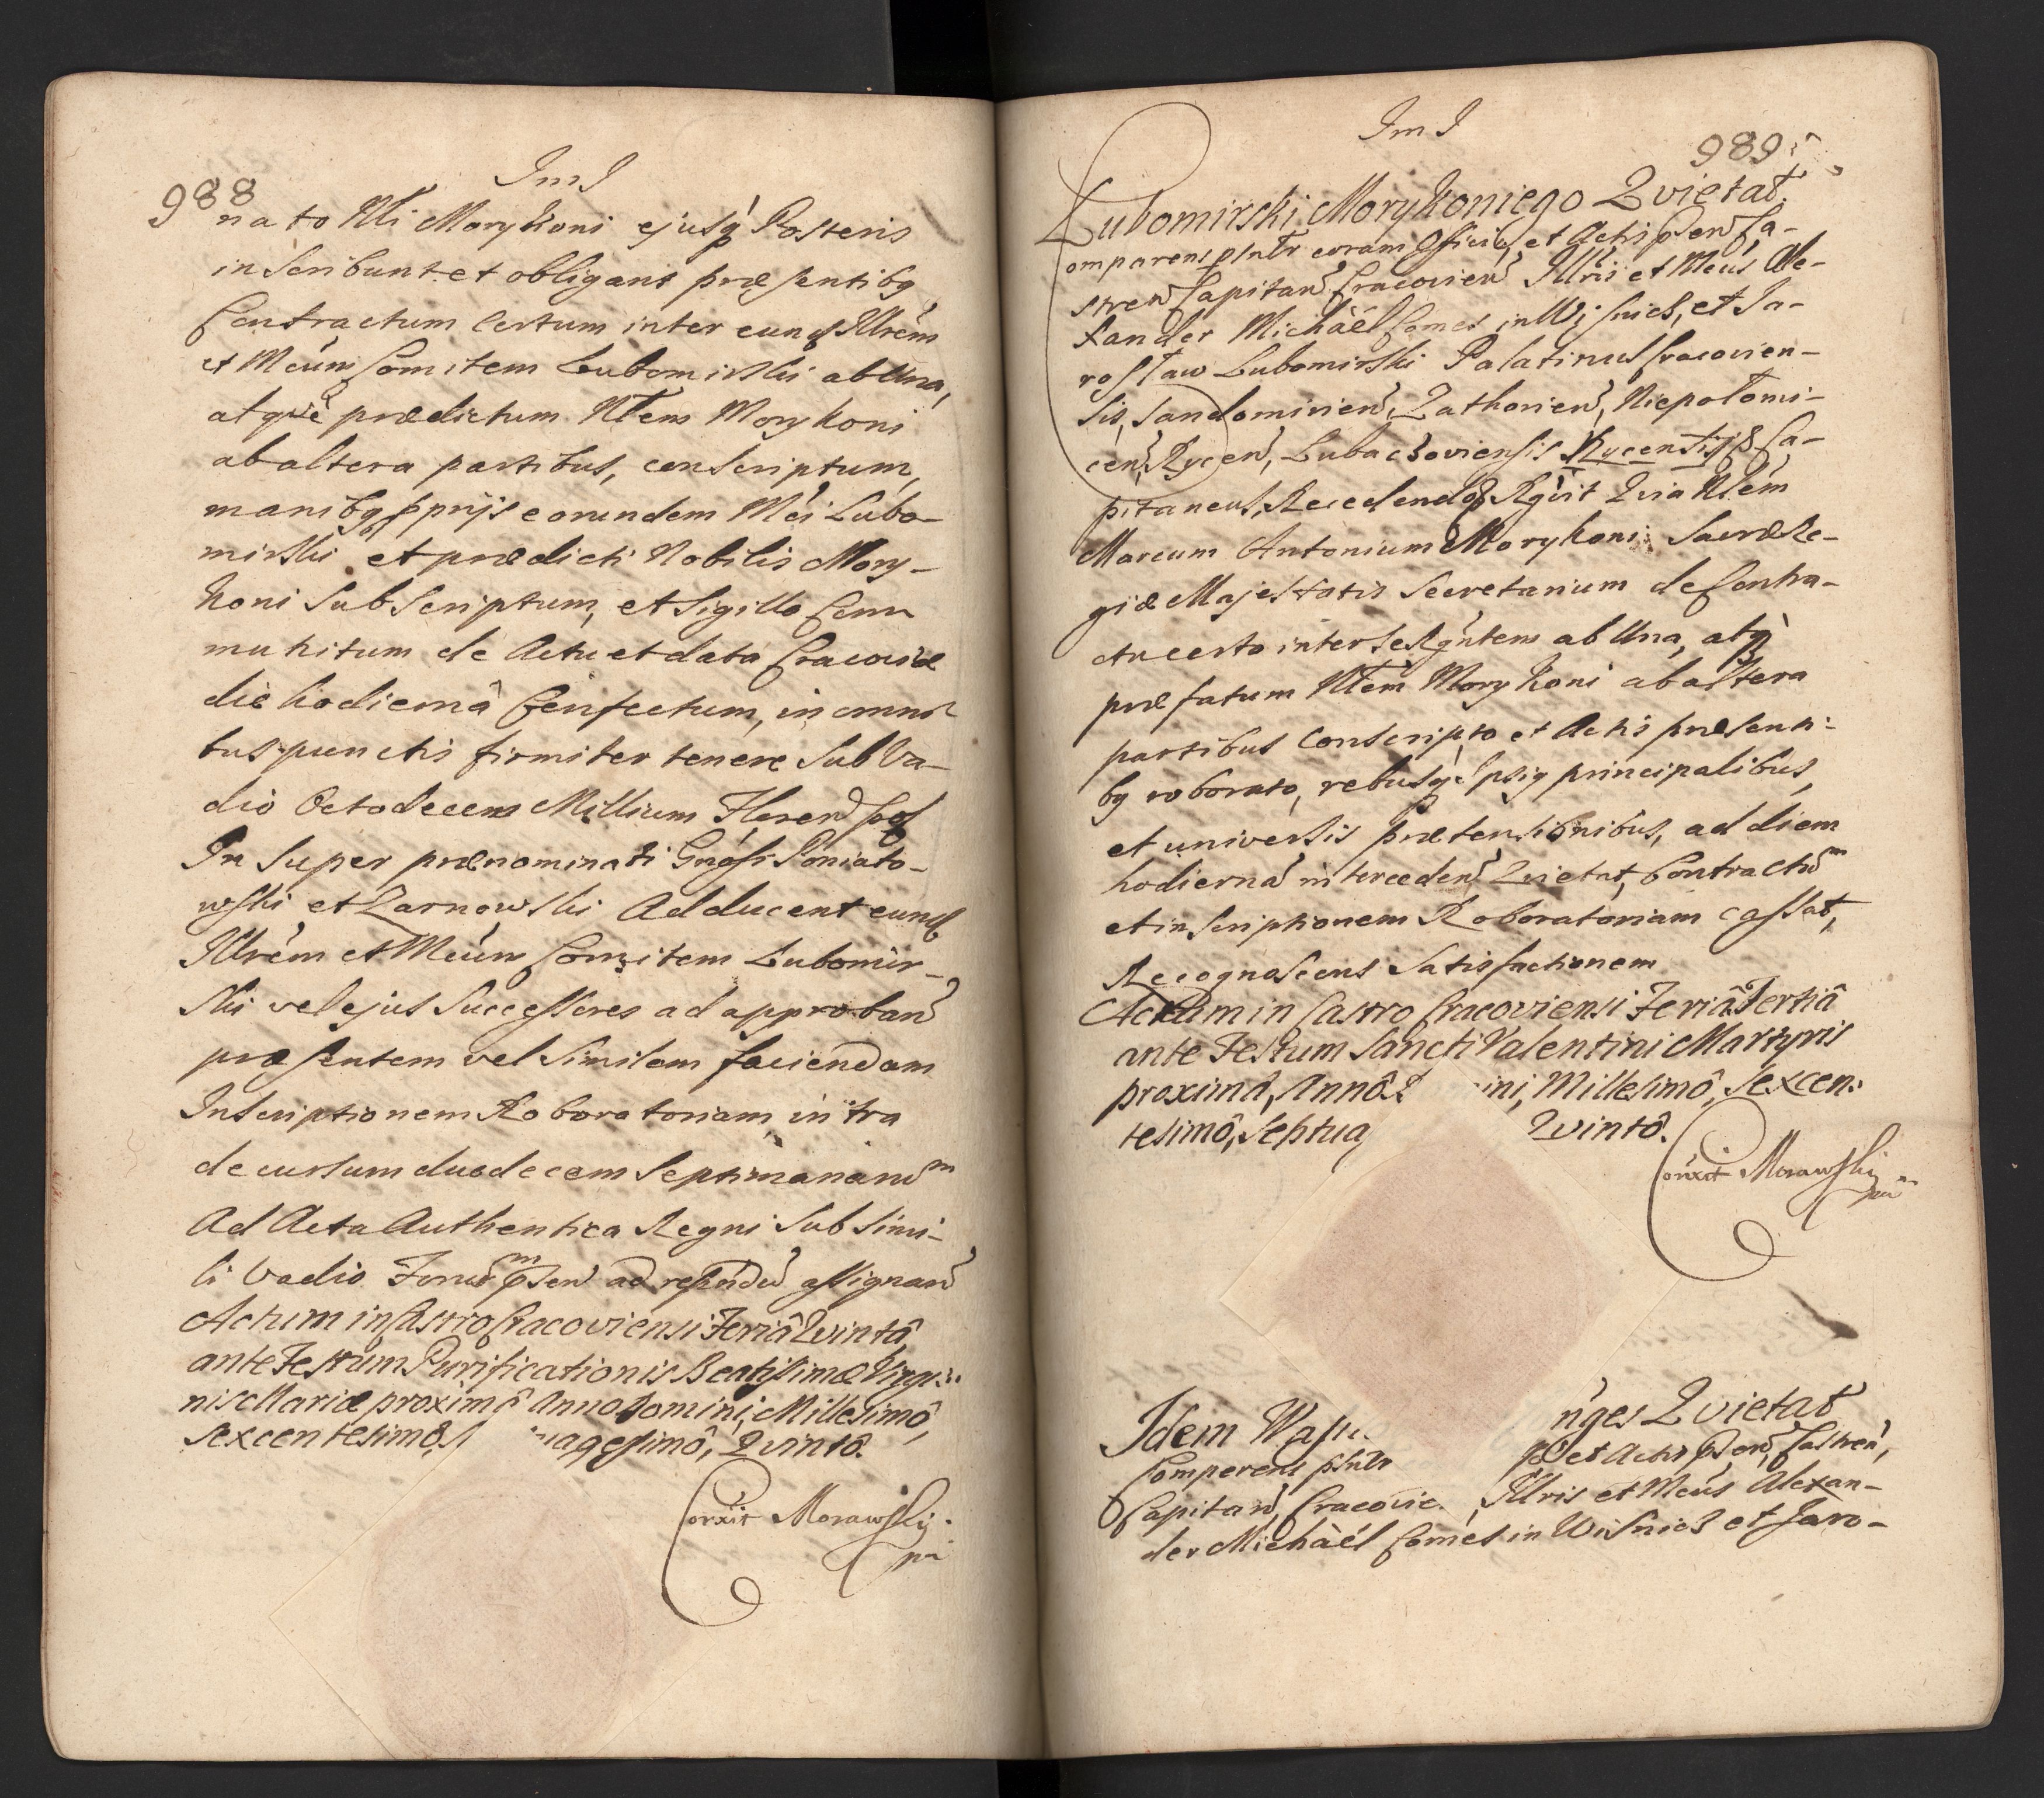 988
ImI
nato Nli Morykoni ejusq́ Posteris
inscribunt et obligant præsentibq
Contractum Certum inter eund Illrem
et Mcum Comitem Lubomirski ab Una,
atque prædictum Nlem Morykoni
ab altera partibus, conscriptum,
manibq pprijs eorundem Mci Lubo-
mirski et prædicti Nobilis Mory-
koni Subscriptum, et Sigillo Com
munitum de Actu et data Cracoviæ
die hodiernâ Confectum, in omni
bus punctis firmiter tenere Sub Va-
dio Octodecem Millium Floren pol
In Super prænominati Gnosi Poniato-
wski et Zarnowski Adducent eund
Illrem et Mcum Comitem Lubomir-
ski vel ejus Successores ad approban
præsentem vel Similem faciendam
Inscriptionem Roboratoriam intra
decursum duodecem Septimanarum
Ad Acta Authentica Regni Sub Simi-
li Vadio Forum pSen ad respndu assignan
Actum in Castro Cracoviensi Feriâ Qvintâ
ante Festum Purificationis Beatissimæ Virgi:
nis Mariæ proximâ Anno Domini, Millesimô,
Sexcentesimô, S uagesimô, Qvintô.
Corrxit Morawskij
pm
ImI
989
Lubomirski Morykoniego Qvietat.
omparens psntr coram Officio, et Actis pSen Ca-
stren Capitan Cracovien Illris et Mcus Ale-
xander Michàél Comes in Wisnicz, et Ja-
rosław Lubomirski Palatinus Cracovien-
sis, Sandomirien, Zathorien, Niepołomi-
cen, Rycen, Lubaczoviensis Rycensisq Ca-
pitaneus, Recedendo Rgvit Qvia Nlem
Marcum Antonium Morykoni Sacræ Re-
giæ Majestatis Secretarium de Contra-
ctu certo inter se Rgntem ab Una, atq́
præfatum Nlem Morykoni ab altera
partibus Conscripto et Actis præsenti-
bq roborato, rebusq́ Ipsiq principalibus,
et universis prætensionibus, ad diem
hodierna interceden Qvietat, Contractum
et inscriptionem Roboratoriam cassat,
Recognoscens Satisfactionem
Actum in Castro Cracoviensi Feriâ Tertiâ
ante Festum Sancti Valentini Martyris
proximâ, Annô D ini, Millesimô, Sexcen:
tesimô, Septua Qvintô.
Corrxit Morawskij
pm
Idem Wąsu nges Qvietat
Comparens psntr et Actis pSen Castren,
Capitan, Cracovie Illris et Mcus Alexan-
der Michàél Comes in Wisnicz et Jaro-